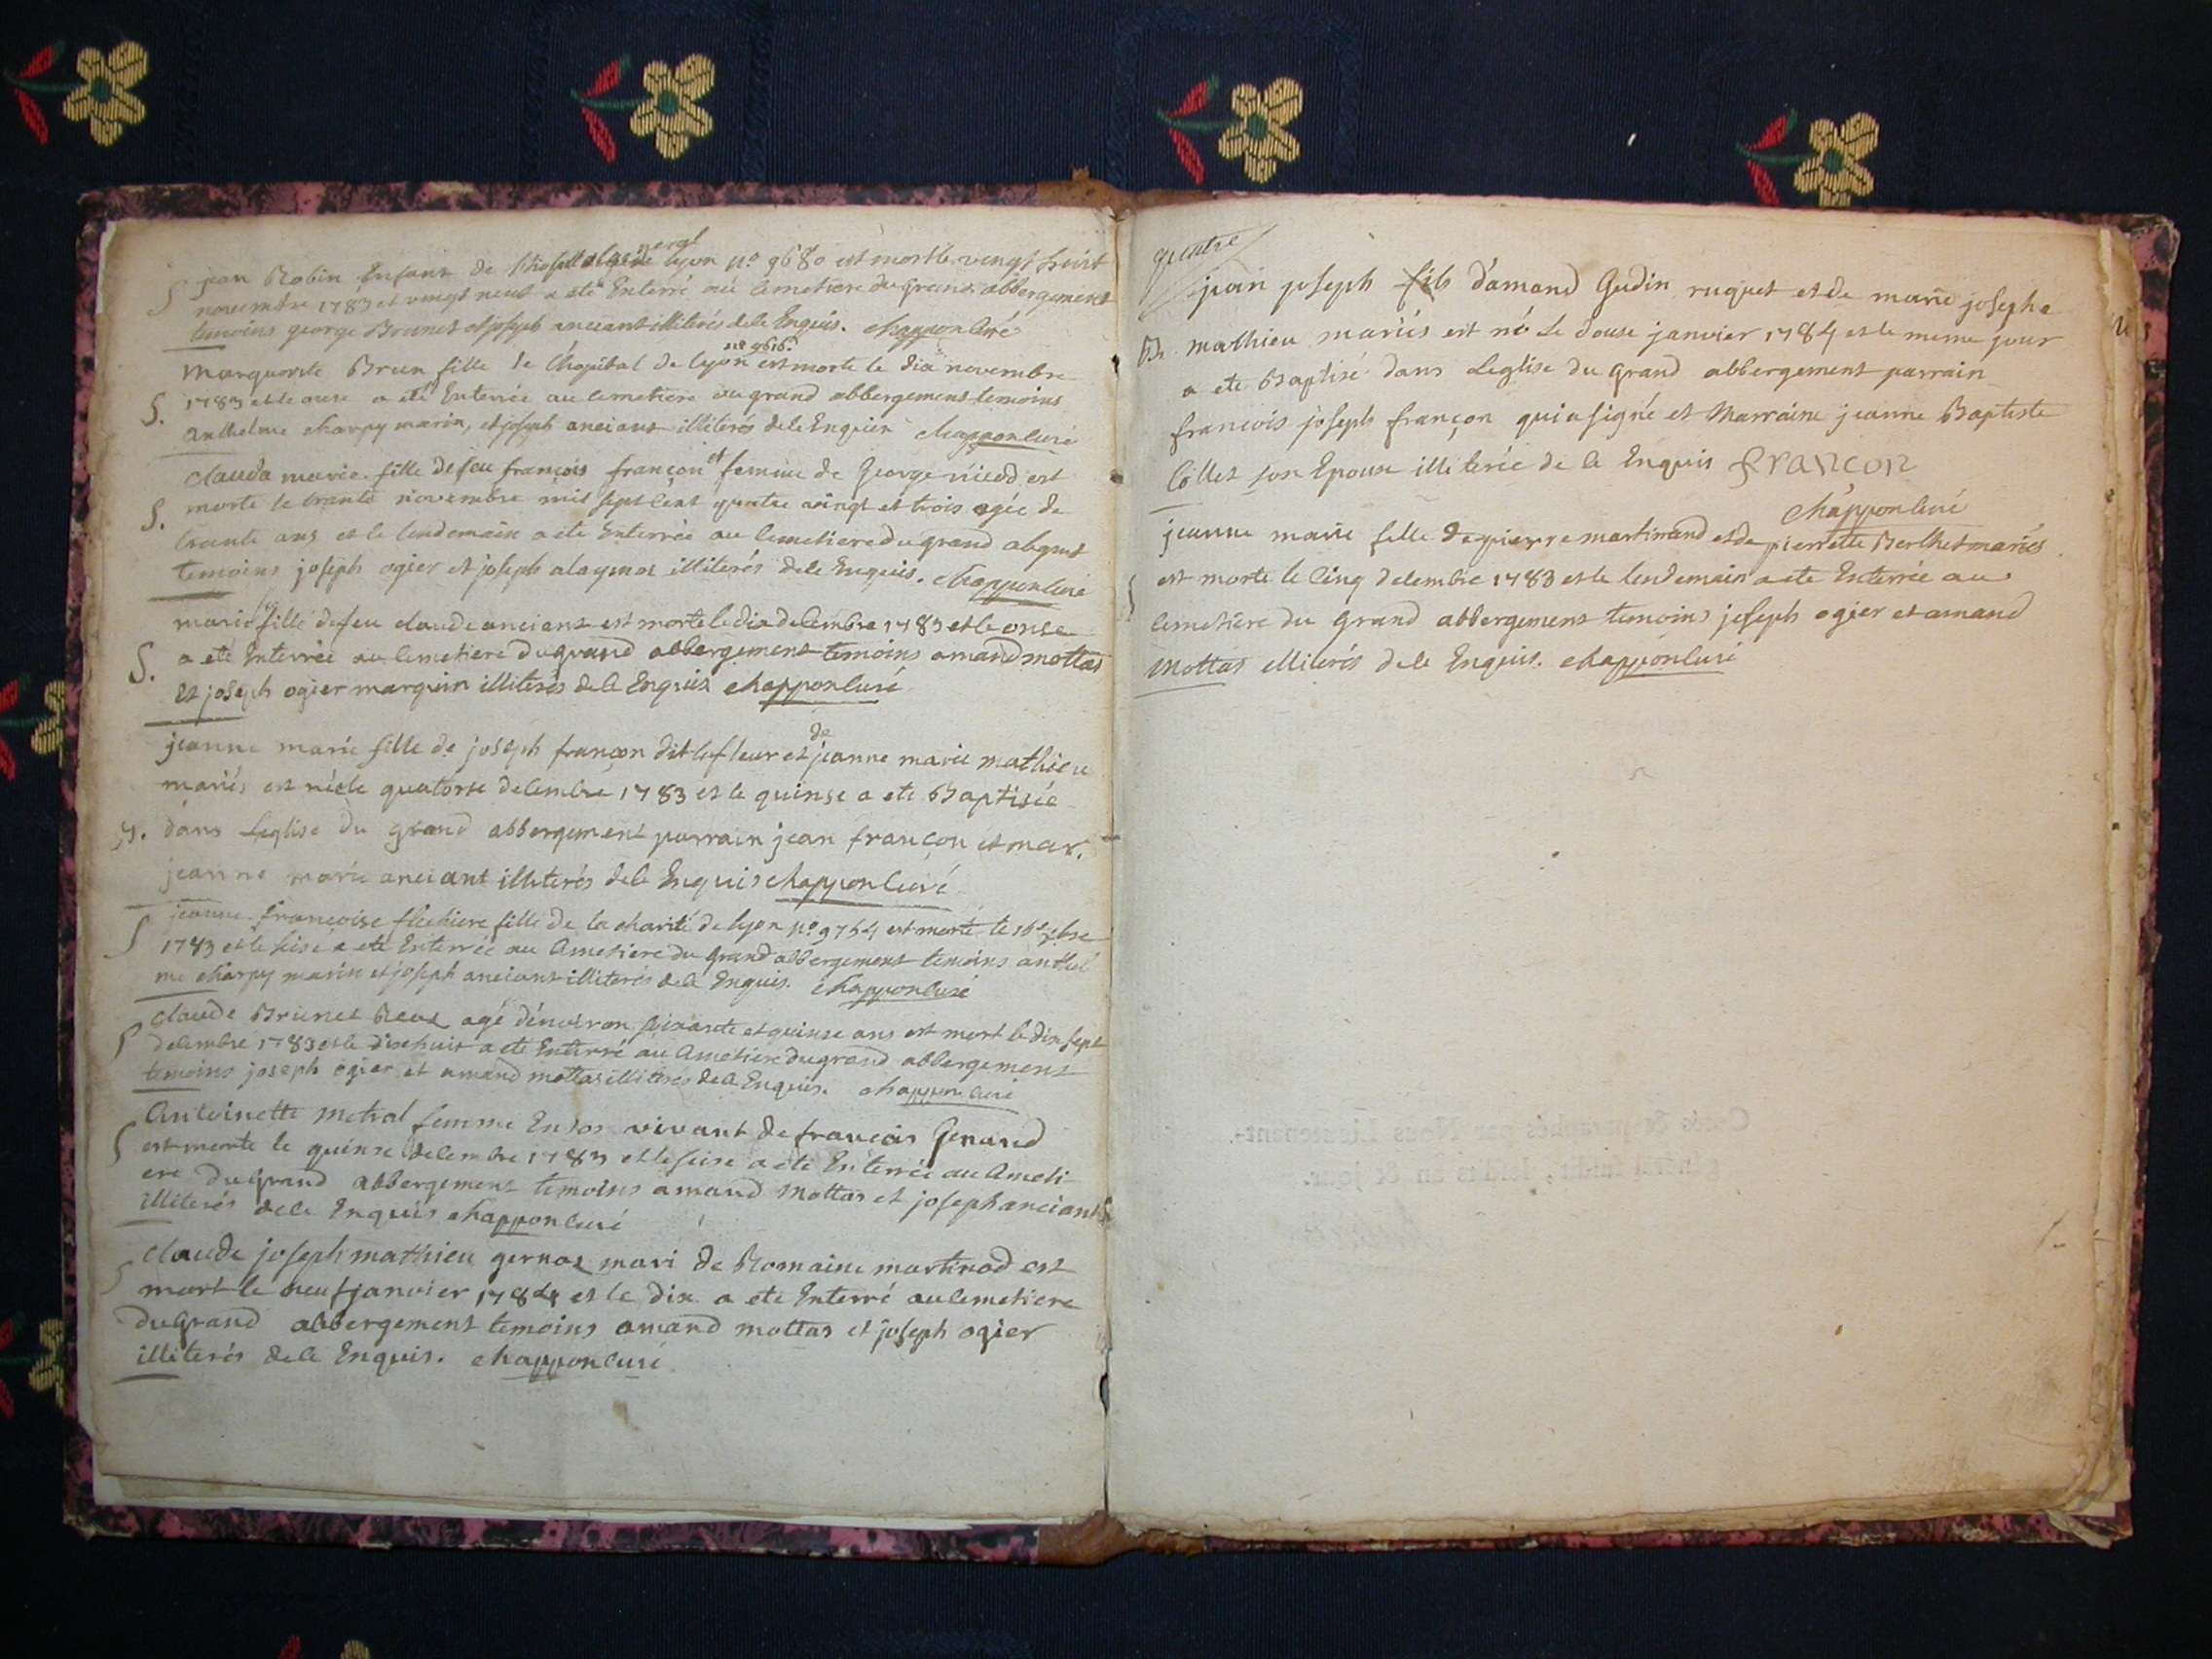 S jean Robin Enfant de l'hopital general de lyon n.º 9680 est mort le vingt huit
novembre 1783 et vingt neuf a eté Enterré au cemetiere du grand abbergement
temoins george Brunet et joseph anciant illiterés de ce Enquis. chappon curé
marguerite Brun fille de l'hopital de lyon n.º 9616 est morte le dix novembre
S. 1783 et le onse a eté Enterrée au cemetiere du grand abbergement temoins
anthelme charpy marin, et joseph anciant illiterés de ce Enquis chappon curé
clauda marie fille de feu francois françon et femme de George niod est
S. morte le trante novembre mil sept cent quatre vingt et trois agée de
trante ans et le lendemain a ete Enterrée au cemetiere du grand abgmt
temoins joseph ogier et joseph alaymoz illiterés de ce Enquis. chappon curé
marie fille de feu claude anciant est morte le dix decembre 1783 et le onse
S. a eté Enterrée au cemetiere du grand abbergement temoins amand mottas
et joseph ogier marguin illiterés de ce Enquis chappon curé
jeanne marie fille de joseph françon dit lafleur et de jeanne marie mathieu
mariés est née le quatorse decembre 1783 et le quinse a ete Baptisée
B. dans Leglise du grand abbergement parrain jean françon et mar.
jeanne marie anciant illiterés de ce Enquis chappon curé
S jeanne francoise flechiere fille de la charité de lyon n.º 9754 est morte le 15 Xbre
1783 et le seise a eté Enterrée au cemetiere du grand abbergement temoins anthel
me charpy marin et joseph anciant illiterés de ce Enquis. chappon curé
claude Brunet Reue agé d'environ soixante et quinse ans est mort le dix sept
S decembre 1783 et le dix huit a eté Enterré au cemetiere du grand abbergement
temoins joseph ogier et amand mottas illiterés de ce Enquis. chappon curé
Antoinette metral femme En son vivant de francois Genand
S est morte le quinse decembre 1783 et le seise a ete Enterrée au cemeti
ere du grand abbergement temoins amand mottas et joseph anciant
illiterés de ce Enquis chappon curé
claude joseph mathieu gernoz mari de Romaine martinod est
S mort le neuf janvier 1784 et le dix a ete Enterré au cemetiere
du grand abbergement temoins amand mottas et joseph ogier
illiterés de ce Enquis. chappon curé
quatre
jean joseph fils d'amand Gudin ruguet et de marie josephe
B. mathieu mariés est né Le douse janvier 1784 et le meme jour
a ete Baptisé dans Leglise du grand abbergement parrain
francois joseph françon qui a signé et Marraine jeanne Baptiste
Collet son Epouse illiterée de ce Enquis francon
chappon curé
jeanne marie fille de pierre martinand et de pierrette Berthet mariés
S est morte le cinq decembre 1783 et le lendemain a ete Enterrée au
cemetiere du grand abbergement temoins joseph ogier et amand
Mottas illiterés de ce Enquis. chappon curé